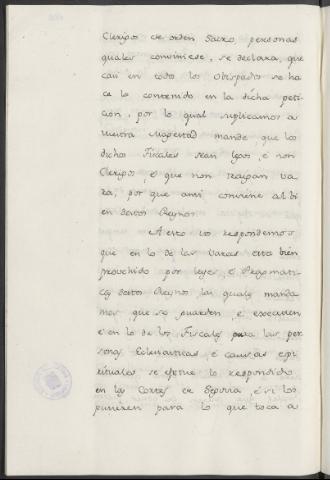 Clerigos de orden Sacro, personas
quales conviniese, se declara, que
casi en todos los Obispados se ha
ce lo contenido en la dicha peti
cion, por lo qual suplicamos a
vuestra Magestad mande, que los
dichos Fiscales sean legos, é non
Clerigos, é que non traigan va
ra, por que ansi conviene al bi
en destos Reynos.
A esto vos respondemos
que en lo de las varas esta bien
provehido por leyes, é Pregmati
cas destos Reynos las quales manda
mos que se guarden, e executen
é en lo de los Fiscales para las per
sonas Eclesiasticas, é causas espi
rituales se estme lo respondido
en las Cortes de Segovia, é si los
pusieren para lo que toca a